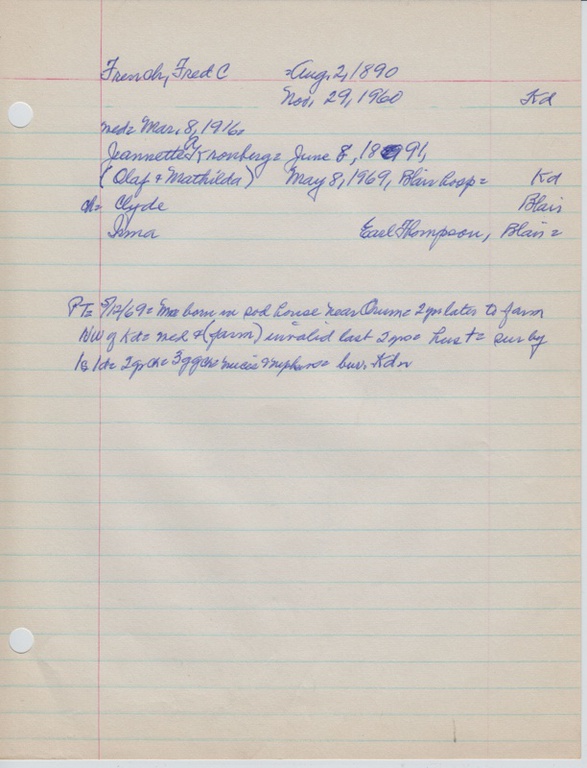 French, Fred C =Aug. 2, 1890
Nov. 29, 1960 Kd
med= Mar. 8, 1916=
Jeannette A Kronberg= June 8, 1891,
(Olaf & Mathilda) May 8, 1969, Blair hosp= Kd
ch= Clyde Blair
Irma Earl Thompson, Blair=
PT= 5/12/69= Mrs born in sod house near Orum= 2 yrs later to farm
NW of Kd= med & (farm) invalid last 2 yrs= hus †= sur by
1s 1d= 2 gr ch= 3 ggch= niece & nephews= bur. Kd=